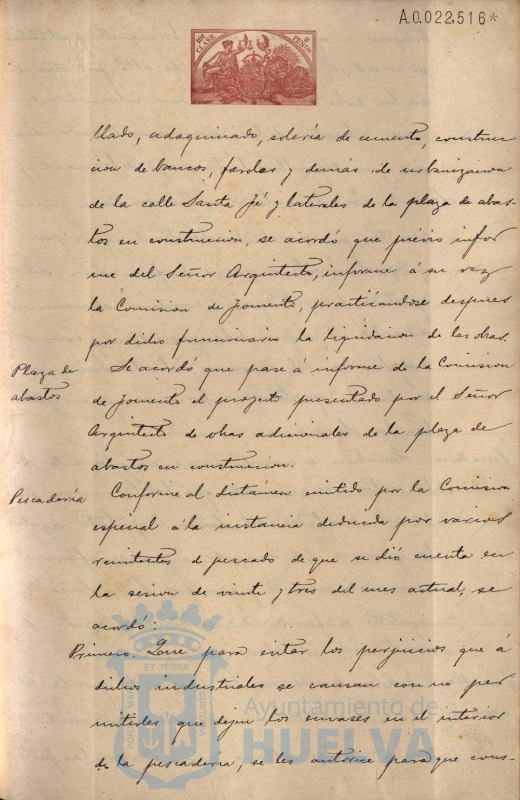 A.0.022,516*
10ª CLASE
2 PESETAS
llado, adoquinado, solería de cemento, construc
cion de bancos, farolas y demás de urbanizacion
de la calle Santa Fé y laterales de la plaza de abas-
tos en construcion, se acordó que prévio infor
me del Señor Arquitecto, informe á su vez
la Comision de Fomento, practicándose despues
por dicho funcionario la liquidacion de las obras.
Plaza de abastos
Se acordó que pase á informe de la Comision
de Fomento el proyecto presentado por el Señor
Arquitecto de obras adicionales de la plaza de
abastos en construcion.
Pescadería
Conforme al dictámen emitido por la Comision
especial á la instancia deducida por varios
remitentes de pescado de que se dió cuenta en
la sesion de veinte y tres del mes actual, se
acordó:
Primero. Que para evitar los perjuicios que á
dichos industriales se causan con no per
mitirles que dejen los envases en el interior
de la pescadería, se les autorice para que cons-
PORTUS MARIS
ET TERRÆ
CUSTODIA
Ayuntamiento de
HUELVA